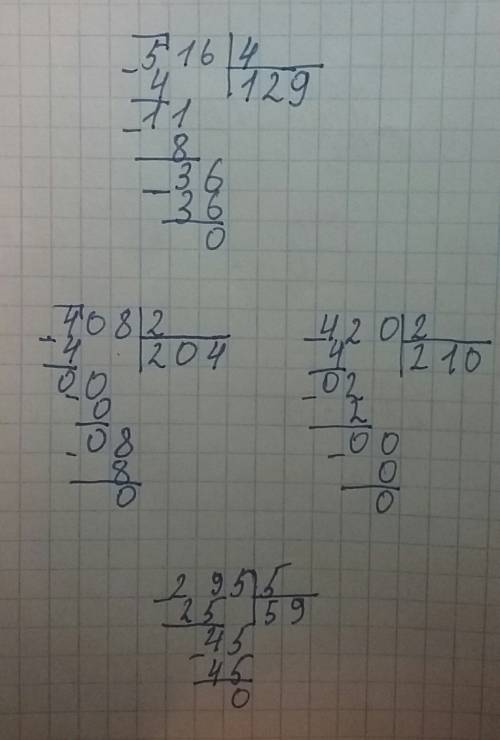 516 4
- 4 129
- 11
8
- 36
36
0
408 2
- 4 204
- 00
0
- 08
8
0
- 420 2
4 210
- 02
2
- 00
0
0
- 295 5
25 59
- 45
45
0